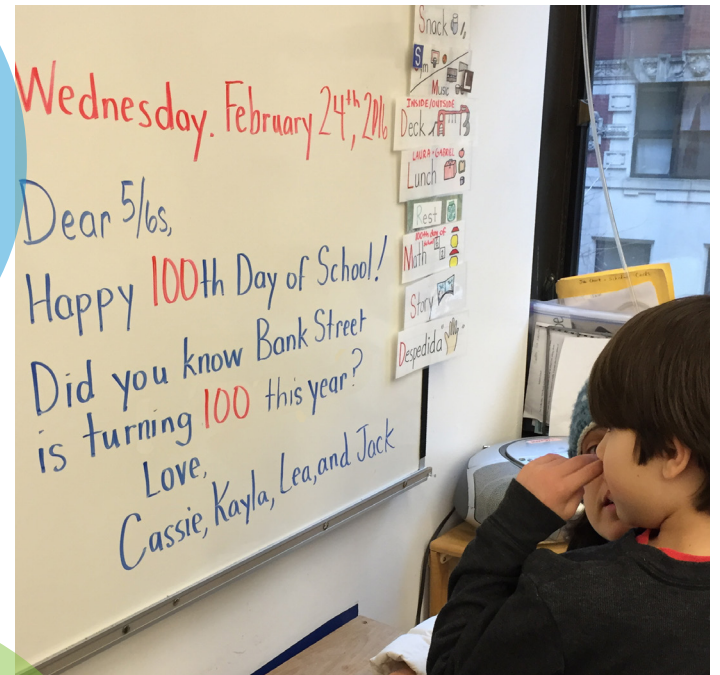 Wednesday. February 24th, 2016
Dear 5/6s,
Happy 100th Day of School!
Did you know Bank Street
is turning 100 this year?
Love,
Cassie, Kayla, Lea, and Jack
Snack
Music
INSIDE/OUTSIDE
Deck
LAURA + GABRIEL
Lunch
Rest
100th day of
Math
Story
Despedida